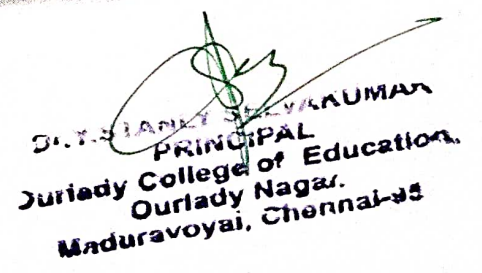 Dr.Y.STANLY SELVAKUMAR
PRINCIPAL
Ourlady College of Education,
Ourlady Nagar,
Maduravoyal, Chennai-95